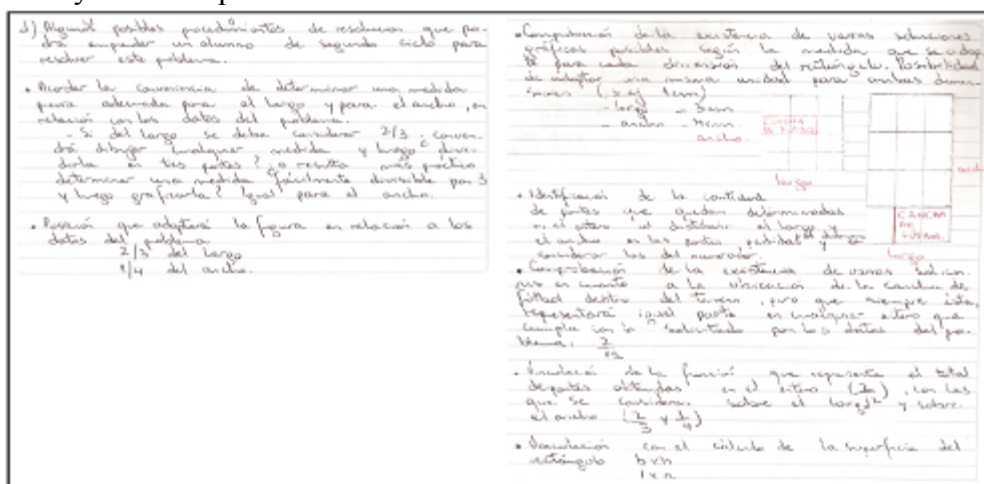 d) Algunos posibles procedimientos de resolución que po-
drá emplear un alumno de segundo ciclo para
resolver este problema.
• Acordar la conveniencia de determinar una medida
adecuada para el largo y para el ancho, en
relación con los datos del problema.
- Si del largo se debe considerar 2/3, conven-
drá dibujar cualquier medida y luego divi-
dirla en tres partes? ¿o resulta más práctico
determinar una medida fácilmente divisible por 3
y luego graficarla? Igual para el ancho.
• Posición que adoptará la figura en relación a los
datos del problema
2/3 del largo
1/4 del ancho.
• Comprobación de la existencia de varias soluciones
gráficas posibles según la medida que se adop
te para cada dimensión del rectángulo. Posibilidad
de adoptar una misma unidad para ambas dimen-
siones (x ej 1cm)
- largo - 3cm
- ancho - 4cm
CANCHA
DE FÚTBOL
ancho.
largo
ancho
CANCHA
DE
FÚTBOL
largo
• Identificación de la cantidad
de partes que quedan determinadas
en el entero al distribuir el largo y
el ancho en las partes pedidas y
considerar las del numerador.
• Comprobación de la existencia de varias
en cuanto a la ubicación de la cancha de
fútbol dentro del terreno, pero que siempre ésta,
representará igual parte en cualquier entero que
cumpla con lo solicitado por los datos del pro-
blema. 2
12
• de la fracción que representa el total
de partes obtenidas en el entero, con las
que se consideran sobre el largo y sobre
el ancho (2/3 y 1/4)
• Vinculación con el cálculo de la superficie del
rectángulo b x h